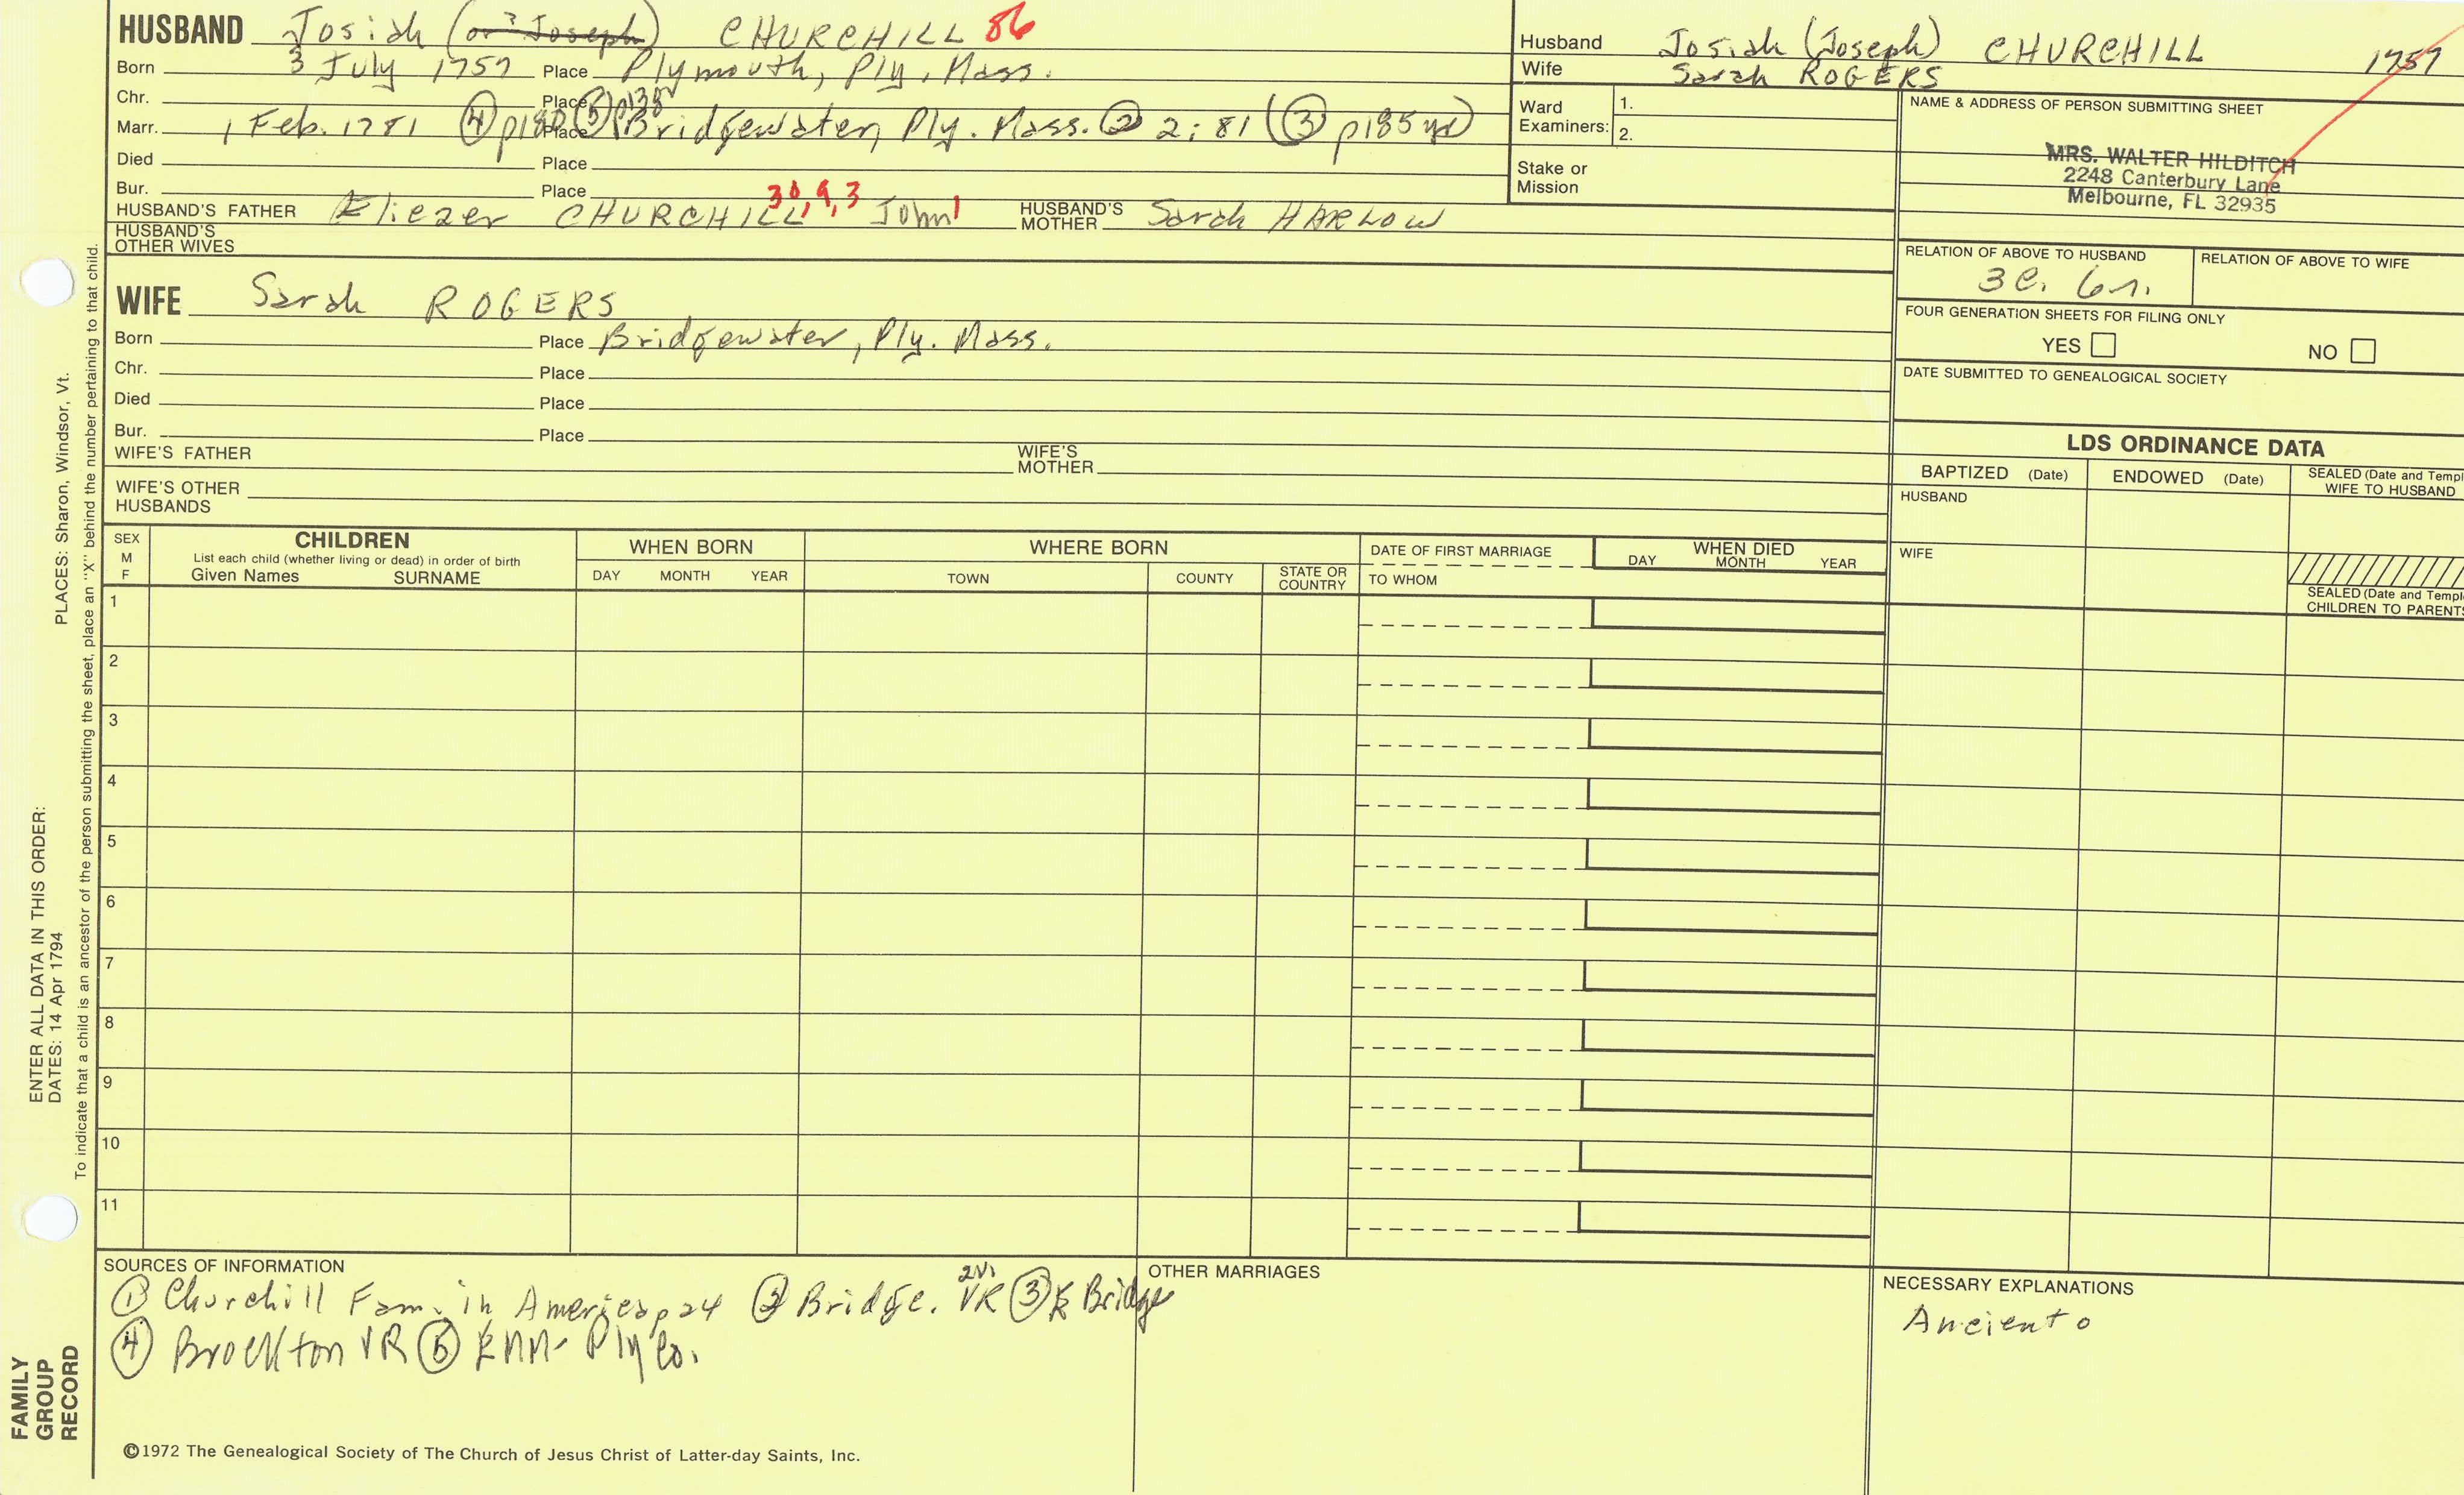 HUSBAND Josiah (or ? Joseph) CHURCHILL 86
Born 3 July 1757 Place Plymouth, Ply, Mass.
Chr. Place
Marr. 1 Feb. 1781 ④ Place ⑤ Bridgewater, Ply. Mass. ② 2:81 (③ p185
Died Place
Bur. Place
HUSBAND'S FATHER Eliezer CHURCHILL 30,9,3 John1 HUSBAND'S MOTHER Sarah HARLOW
HUSBAND'S OTHER WIVES
WIFE Sarah ROGERS
Born Place Bridgewater, Ply. Mass.
Chr. Place
Died Place
Bur. Place
WIFE'S FATHER WIFE'S MOTHER
WIFE'S OTHER HUSBANDS
Husband Josiah (Joseph) CHURCHILL 1757
Wife Sarah ROGERS
Ward Examiners: 1.
2.
Stake or Mission
NAME & ADDRESS OF PERSON SUBMITTING SHEET
MRS. WALTER HILDITCH
2248 Canterbury Lane
Melbourne, FL 32935
RELATION OF ABOVE TO HUSBAND RELATION OF ABOVE TO WIFE
3c. 6r.
FOUR GENERATION SHEETS FOR FILING ONLY
YES NO
DATE SUBMITTED TO GENEALOGICAL SOCIETY
LDS ORDINANCE DATA
BAPTIZED (Date) ENDOWED (Date) SEALED (Date and Templ
WIFE TO HUSBAND
HUSBAND
WIFE
SEALED (Date and Templ
CHILDREN TO PARENTS
SEX
M
F
CHILDREN
List each child (whether living or dead) in order of birth
Given Names SURNAME
WHEN BORN
DAY MONTH YEAR
WHERE BORN
TOWN COUNTY STATE OR COUNTRY
DATE OF FIRST MARRIAGE
TO WHOM
WHEN DIED
DAY MONTH YEAR
1
2
3
4
5
6
7
8
9
10
11
SOURCES OF INFORMATION
① Churchill Fam. in America p24 ② Bridge. VR ③ Bridge
④ Brockton VR ⑤ Ply Co.
OTHER MARRIAGES
NECESSARY EXPLANATIONS
Ancient o
©1972 The Genealogical Society of The Church of Jesus Christ of Latter-day Saints, Inc.
FAMILY
GROUP
RECORD
ENTER ALL DATA IN THIS ORDER:
DATES: 14 Apr 1794
PLACES: Sharon, Windsor, Vt.
To indicate that a child is an ancestor of the person submitting the sheet, place an "X" behind the number pertaining to that child.